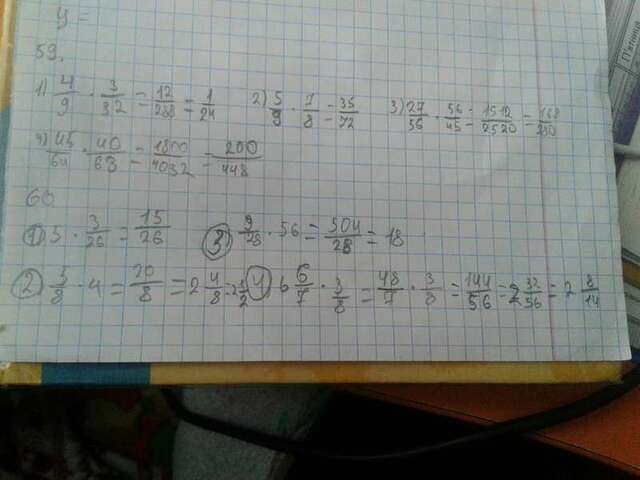 y =
59.
1) 4/9 · 3/32 = 12/288 = 1/24 2) 5/9 · 7/8 = 35/72 3) 27/56 · 56/45 = 1512/2520 = 168/280
4) 45/64 · 40/63 = 1800/4032 = 200/448
60
1) 5 · 3/26 = 15/26 3) 9/28 · 56 = 504/28 = 18
2) 5/8 · 4 = 20/8 = 2 4/8 = 2 1/2 4) 6 6/7 · 3/8 = 48/7 · 3/8 = 144/56 = 2 32/56 = 2 8/14